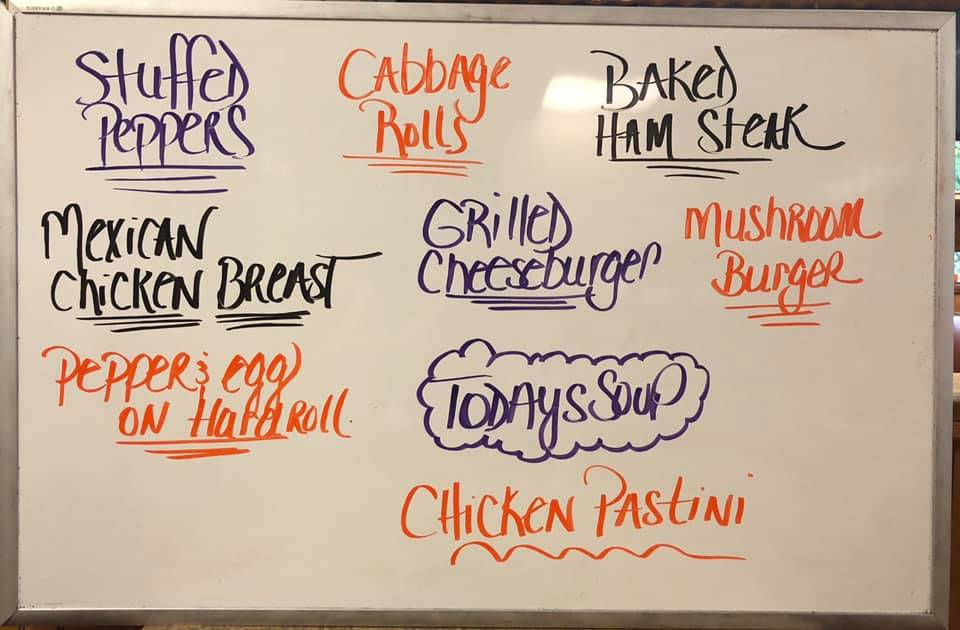 Stuffed
Peppers
Cabbage
Rolls
Baked
Ham Steak
Mexican
Chicken Breast
Grilled
Cheeseburger
Mushroom
Burger
Pepper & egg
on Hard Roll
Todays Soup
Chicken Pastini